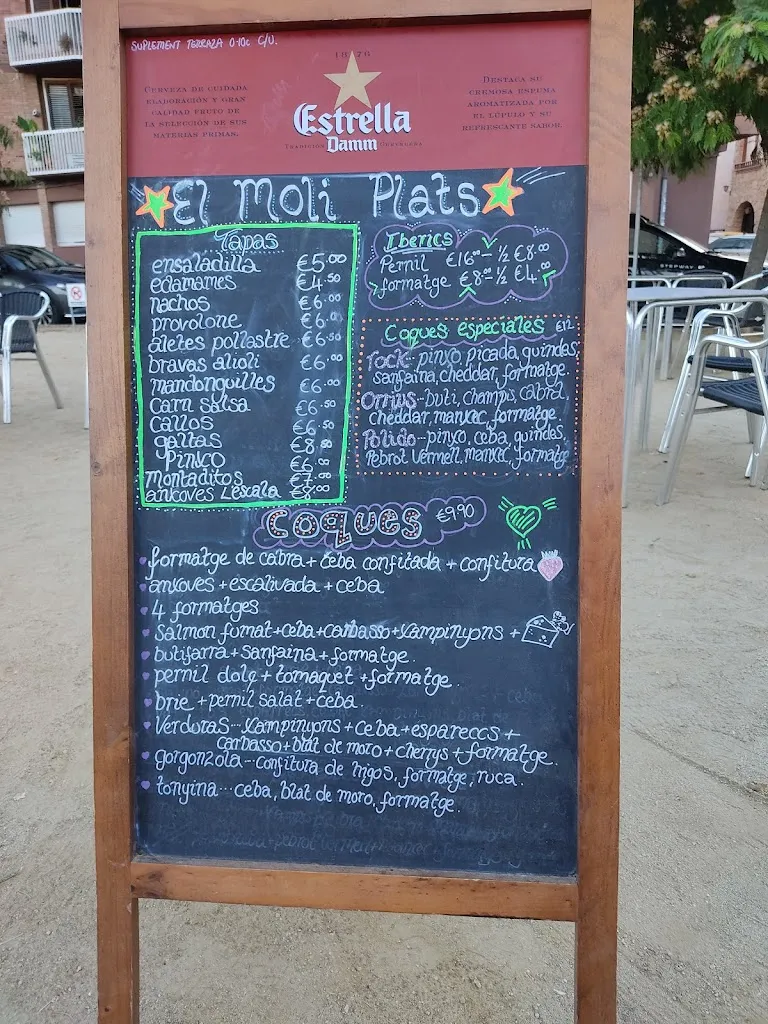 SUPLEMENT TERRAZA 0.10€ C/U.
1876
CERVEZA DE CUIDADA
ELABORACIÓN Y GRAN
CALIDAD FRUTO DE
LA SELECCIÓN DE SUS
MATERIAS PRIMAS.
Estrella
Damm
TRADICIÓN CERVECERA
DESTACA SU
CREMOSA ESPUMA
AROMATIZADA POR
EL LÚPULO Y SU
REFRESCANTE SABOR.
El Moli Plats
Tapas
ensaladilla €5.00
edamames €4.50
nachos €6.00
provolone €6.
aletes pollastre €6.50
bravas alioli €6.00
mandonguilles €6.00
carn salsa €6.50
callos €6.50
gallas €8.
Pinxo €6.
montaditos
anxoves L'escala €8.00
Iberics
Pernil €16.00 - ½ €8.00
formatge €8.00 - ½ €4.00
Coques especiales €12
rock... pinxo, picada, guindes,
sanfaina, cheddar, formatge.
Orrius - buti, champis, cabra,
cheddar, manxec, formatge.
Polido... pinxo, ceba, guindes,
Pebrot vermell, manxec, formatge
coques €9,90
formatge de cabra + ceba confitada + confitura
anxoves + escalivada + ceba
4 formatges
salmon fumat + ceba + carbasso + xampinyons +
butifarra + sanfaina + formatge.
pernil dolç + tomaquet + formatge.
brie + pernil salat + ceba.
verduras... xampinyons + ceba + espareccs +
carbasso + blat de moro + cherrys + formatge.
gorgonzola... confitura de higos, formatge, ruca.
tonyina... ceba, blat de moro, formatge.
STEPWAY